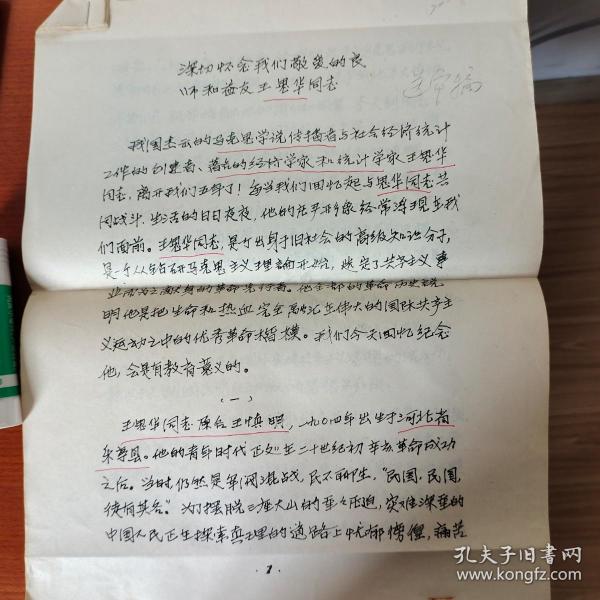 深切怀念我们敬爱的良
师和益友王思华同志
送审稿
我国杰出的马克思学说传播者与社会经济统计
工作的创建者、著名的经济学家和统计学家王思华
同志，离开我们五年了！每当我们回忆起与思华同志共
同战斗、生活的日日夜夜，他的庄严形象经常涌现在我
们面前。王思华同志，是个出身于旧社会的高级知识分子，
是个从钻研马克思主义理论开始，献完了共产主义事
业而为之献身的革命先行者。他全部的革命历史表
明他是把生命和热血完全融汇在伟大的国际共产主
义运动之中的优秀革命楷模。我们今天回忆纪念
他，会是有教育意义的。
（一）
王思华同志原名王慎明，一九〇四年出生于河北省
乐亭县。他的青年时代正处在二十世纪初辛亥革命成功
之后。当时仍然是军阀混战，民不聊生，“民国，民国，
徒有其名”。为了摆脱三座大山的重重压迫，灾难深重的
中国人民正在探索真理的道路上忧郁傍徨，痛苦
·1·
孔夫子旧书网
www.kongfz.com